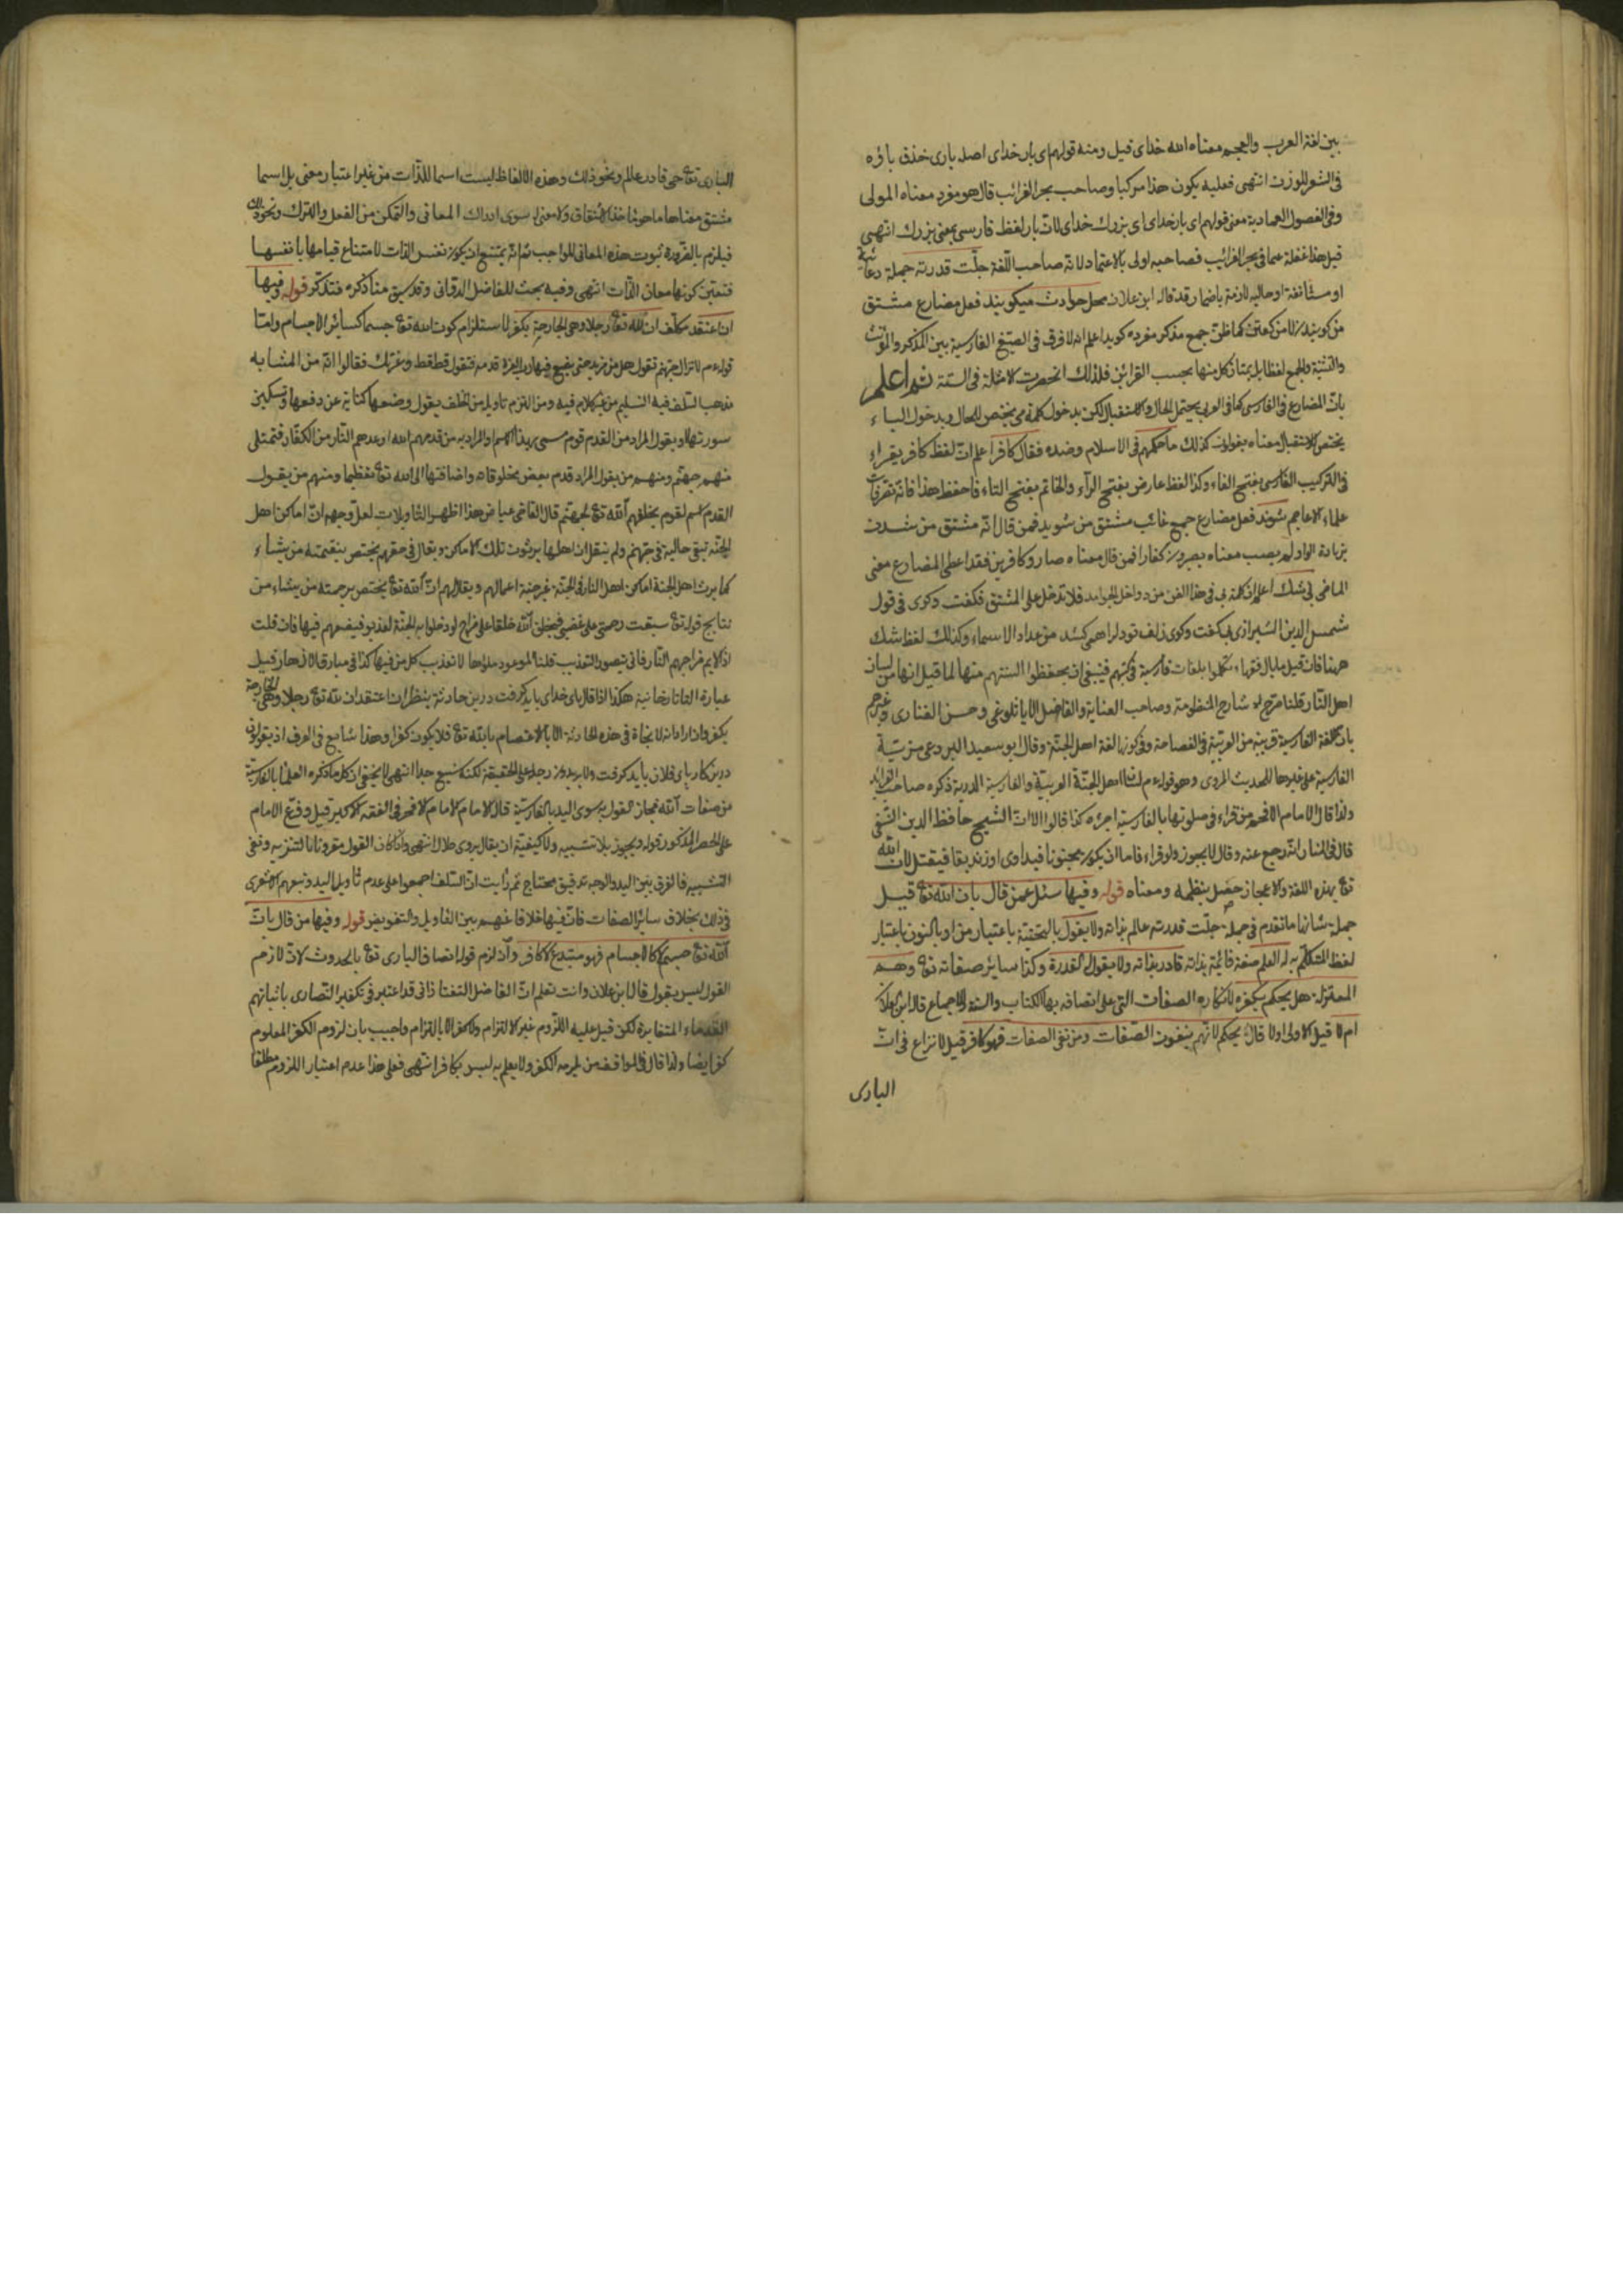 بين لغة العرب والعجم معناه الله خداى قيل ومنه قولهم اى بار خداى اصله بارى خذف ياؤه
فى الشعر للوزن انتهى فعليه يكون هذا مركبا وصاحب بحر الغرائب قال هو مفرد معناه المولى
وفى الفصول العمادية معنى قولهم اى بار خداى اى بزرك خداى لان بار لفظ فارسى بمعنى بزرك انتهى
قيل هذا غفلة عما فى بحر الغرائب فصاحبه اولى بالاعتماد لانه صاحب اللغة جلّت قدرته جملة دعائية
او مستأنفة او حاليه لازمة باضمار قد قاله ابن علان محل حوادث ميكويند فعل مضارع مشتق
من كويند لا من كفتن كما ظنّ جمع مذكر مفرده كويد اعلم انه لا فرق فى الصيغ الفارسية بين المذكر والمؤنث
والتثنية والجمع لفظا بل يمتاز كل منها بحسب القرائن فلذلك انحصرت الامثلة فى الستة ثم اعلم
بان المضارع فى الفارسى كما فى العربى يحتمل الحال والاستقبال لكن بدخول كلمة مى يختص للحال وبدخول الباء
يختص للاستقبال معناه يقولون كذلك ما حكمهم فى الاسلام وضده فقال كافر اعلم انّ لفظ كافر يقراء
فى التركيب الفارسى بفتح الفاء وكذا لفظ عارض بفتح الراء والخاتم بفتح التاء فاحفظ هذا فانه
علماء الاعاجم شوند فعل مضارع جمع غائب مشتق من شويد فمن قال انّه مشتق من شدن
بزيادة الواو لم يصب معناه يصيرون كفارا فمن قال معناه صاروا كافرين فقد اعطى المضارع معنى
الماضى بى شك اعلم ان كلمة بى فى هذا الفن من دواخل الجوامد فلا تدخل على المشتق فكفت وكوى فى قول
شمس الدين الشيرازى بى كفت وكوى زلف تو دلرا همى كشد من عداد الاسماء وكذلك لفظ شك
ههنا فان قيل ما بال فقهاء تكلموا بلغات فارسية فى كتبهم فينبغى ان يحفظوا السنتهم منها لما قيل انها من لسان
اهل النار قلنا صرّح شارح المنظومة وصاحب العناية والفاضل الاياثلوغى وحسن الفنارى وغيرهم
بان اللغة الفارسية قريبة من العربيّة فى الفصاحة وفى كونها لغة اهل الجنّة وقال ابو سعيد البردعى مزيّة
الفارسية على غيرها للحديث المروى وهو قوله عم لسان اهل الجنّة العربيّة والفارسية الدرية ذكره صاحب
ولذا قال الامام الافخم من قراء فى صلوتها بالفارسية اجزءه كذا قالوا الا انّ الشيخ حافظ الدين النسفى
قال فى المنار انّه رجع عنه وقال لا يجوز ولو قراء فاما ان يكون مجنونا فيداوى او زنديقا فيقتل لان الله
تع بهذه اللغة والاعجاز حصل بنظمه ومعناه قوله وفيها سئل عمن قال بان الله تع قيل
جملة شانها ما تقدم فى جملة جلّت قدرته عالم بذاته ولا يقول بالتحتية باعتبار من او بالنون باعتبار
لفظ المتكلّم به له العلم صفة قائمة بذاته قادر بذاته ولا يقول له القدرة وكذا سائر صفاته تع وهم
المعتزلة هل يحكم بكفره لانكاره الصفات التى على اتصافه بها الكتاب والسنة والاجماع قاله ابن علان
ام لا قيل الاولى اولا قال يحكم لانهم ينفون الصّفات ومن نفى الصفات فهو كافر قيل لا نزاع فى انّ
البارى
البارى تع حى قادر عالم ونحو ذلك وهذه الالفاظ ليست اسما للذّات من غير اعتبار معنى بل اسما
مشتق معناها ماخوذا خذ الاشتقاق ولا معنى له سوى ادراك المعانى والتمكن من الفعل والترك ونحو ذلك
فيلزم بالضرورة ثبوت هذه المعانى للواجب ثم انّه يمتنع ان يكون نفس الذات لامتناع قيامها بانفسها
فتعين كونها معان الذّات انتهى وفيه بحث للفاضل الدوانى وقد سبق منا ذكره فتذكر قوله وفيها
ان اعتقد مكلّف ان لله تع رجلا وهى الجارحة يكفر لاستلزام كون الله تع جسما كسائر الاجسام وامّا
قوله عم لا تزال جهنم تقول هل من مزيد حتى يضع فيها رب العزة قدمه فتقول قط قط وعزتك فقالوا انّه من المتشابه
مذهب السلف فيه التسليم من غير كلام فيه ومن التزم تاويله من الخلف يقول وضعها كناية عن دفعها وتسكين
سورتها ويقول المراد من القدم قوم مسمى بهذا الاسم او المراد به من قدمهم الله اوعدهم النّار من الكفار فتمتلى
منهم جهنّم ومنهم من يقول المراد قدم بعض مخلوقاته واضافتها الى الله تع تعظيما ومنهم من يقول
القدم اسم لقوم يخلقهم الله تع لجهنّم قال القاضى عياض هذا اظهر التأويلات لعل وجهه انّ اماكن اهل
الجنّة تبقى خالية فى جهنم ولم ينقل ان اهلها يرثون تلك الاماكن ويقال فى حقهم يختص بنقمته من يشاء
كما يرث اهل الجنة اماكن اهل النار فى الجنّة غير جنة اعمالهم ويقال لهم انّ الله تع يختص برحمته من يشاء من
نتايج قوله تع سبقت رحمتى على غضبى فيخلق الله خلقا على مزاج لو دخلوا به الجنّة لعذبوا فيضعهم فيها فان قلت
اذ لايم مزاجهم النّار فانى يتصور التعذيب قلنا الموعود ملؤها لا تعذيب كل من فيها كذا فى مبارق الازهار قيل
عبارة التاتارخانية هكذا اذا قال باى خداى بايد كرفت درين حادثة ينظر ان اعتقد ان لله تع رجلا وهى الجارحة
يكفر وان اراد انه لا نجاة فى هذه الحادثة الا بالاعتصام بالله تع فلا يكون كفرا وهذا شايع فى العرف اذ يقولون
درين كار باى فلان بايد كرفت ولا يريدون رجله على الحقيقة لكنه شنيع جدا انتهى لا يخفى ان كل ما ذكره العلماء بالفارسية
من صفات الله فجاز القول به سوى اليد بالفارسيّة قال الامام الامام الافخم فى الفقه الاكبر قيل وقع الامام
على الحصر المذكور قوله ويجوز بلا تشبيه ولا كيفيّة ان يقال بروى خدا انتهى واذا كان القول مقرونا بالتنزيه ونفى
التشبيه فالفرق بين اليد والوجه تدقيق محتاج ثم رأيت انّ السّلف اجمعوا على عدم تأويل اليد وتبعهم الاشعرى
فى ذلك بخلاف سائر الصفات فانّ فيها خلافا عنهم بين التاويل والتفويض قوله وفيها من قال بانّ
الله تع جسم كالاجسام فهو مبتدع لا كافر وان لزم قوله اتصاف البارى تع بالحدوث لانّ لازم
القول ليس بقول قال ابن علان وانت تعلم انّ الفاضل التفتازانى قد اعتبر فى تكفير النّصارى باثباتهم
القدماء المتغايرة لكن قيل عليه اللّزوم غير الالتزام ولا كفر الا بالتزام واجيب بان لزوم الكفر المعلوم
كفر ايضا ولذا قال فى المواقف من يلزمه الكفر ولا يعلم به ليس بكافر انتهى فعلى هذا عدم اعتبار اللزوم مطلقا